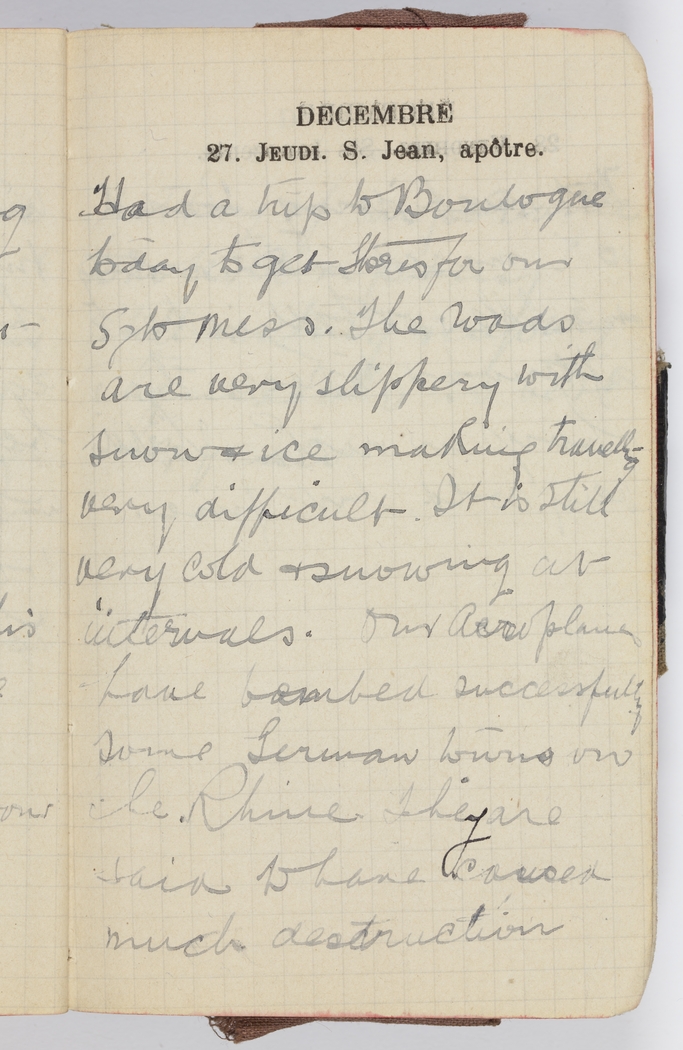 DECEMBRE
27. JEUDI. S. Jean, apôtre.
Had a trip to Boulogne
today to get Stores for our
Sgts mess. The roads
are very slippery with
snow & ice making travellg
very difficult. It is still
very cold & snowing at
intervals. Our Aeroplanes
have bombed successfully
some German towns on
the Rhine. They are
said to have caused
much destruction